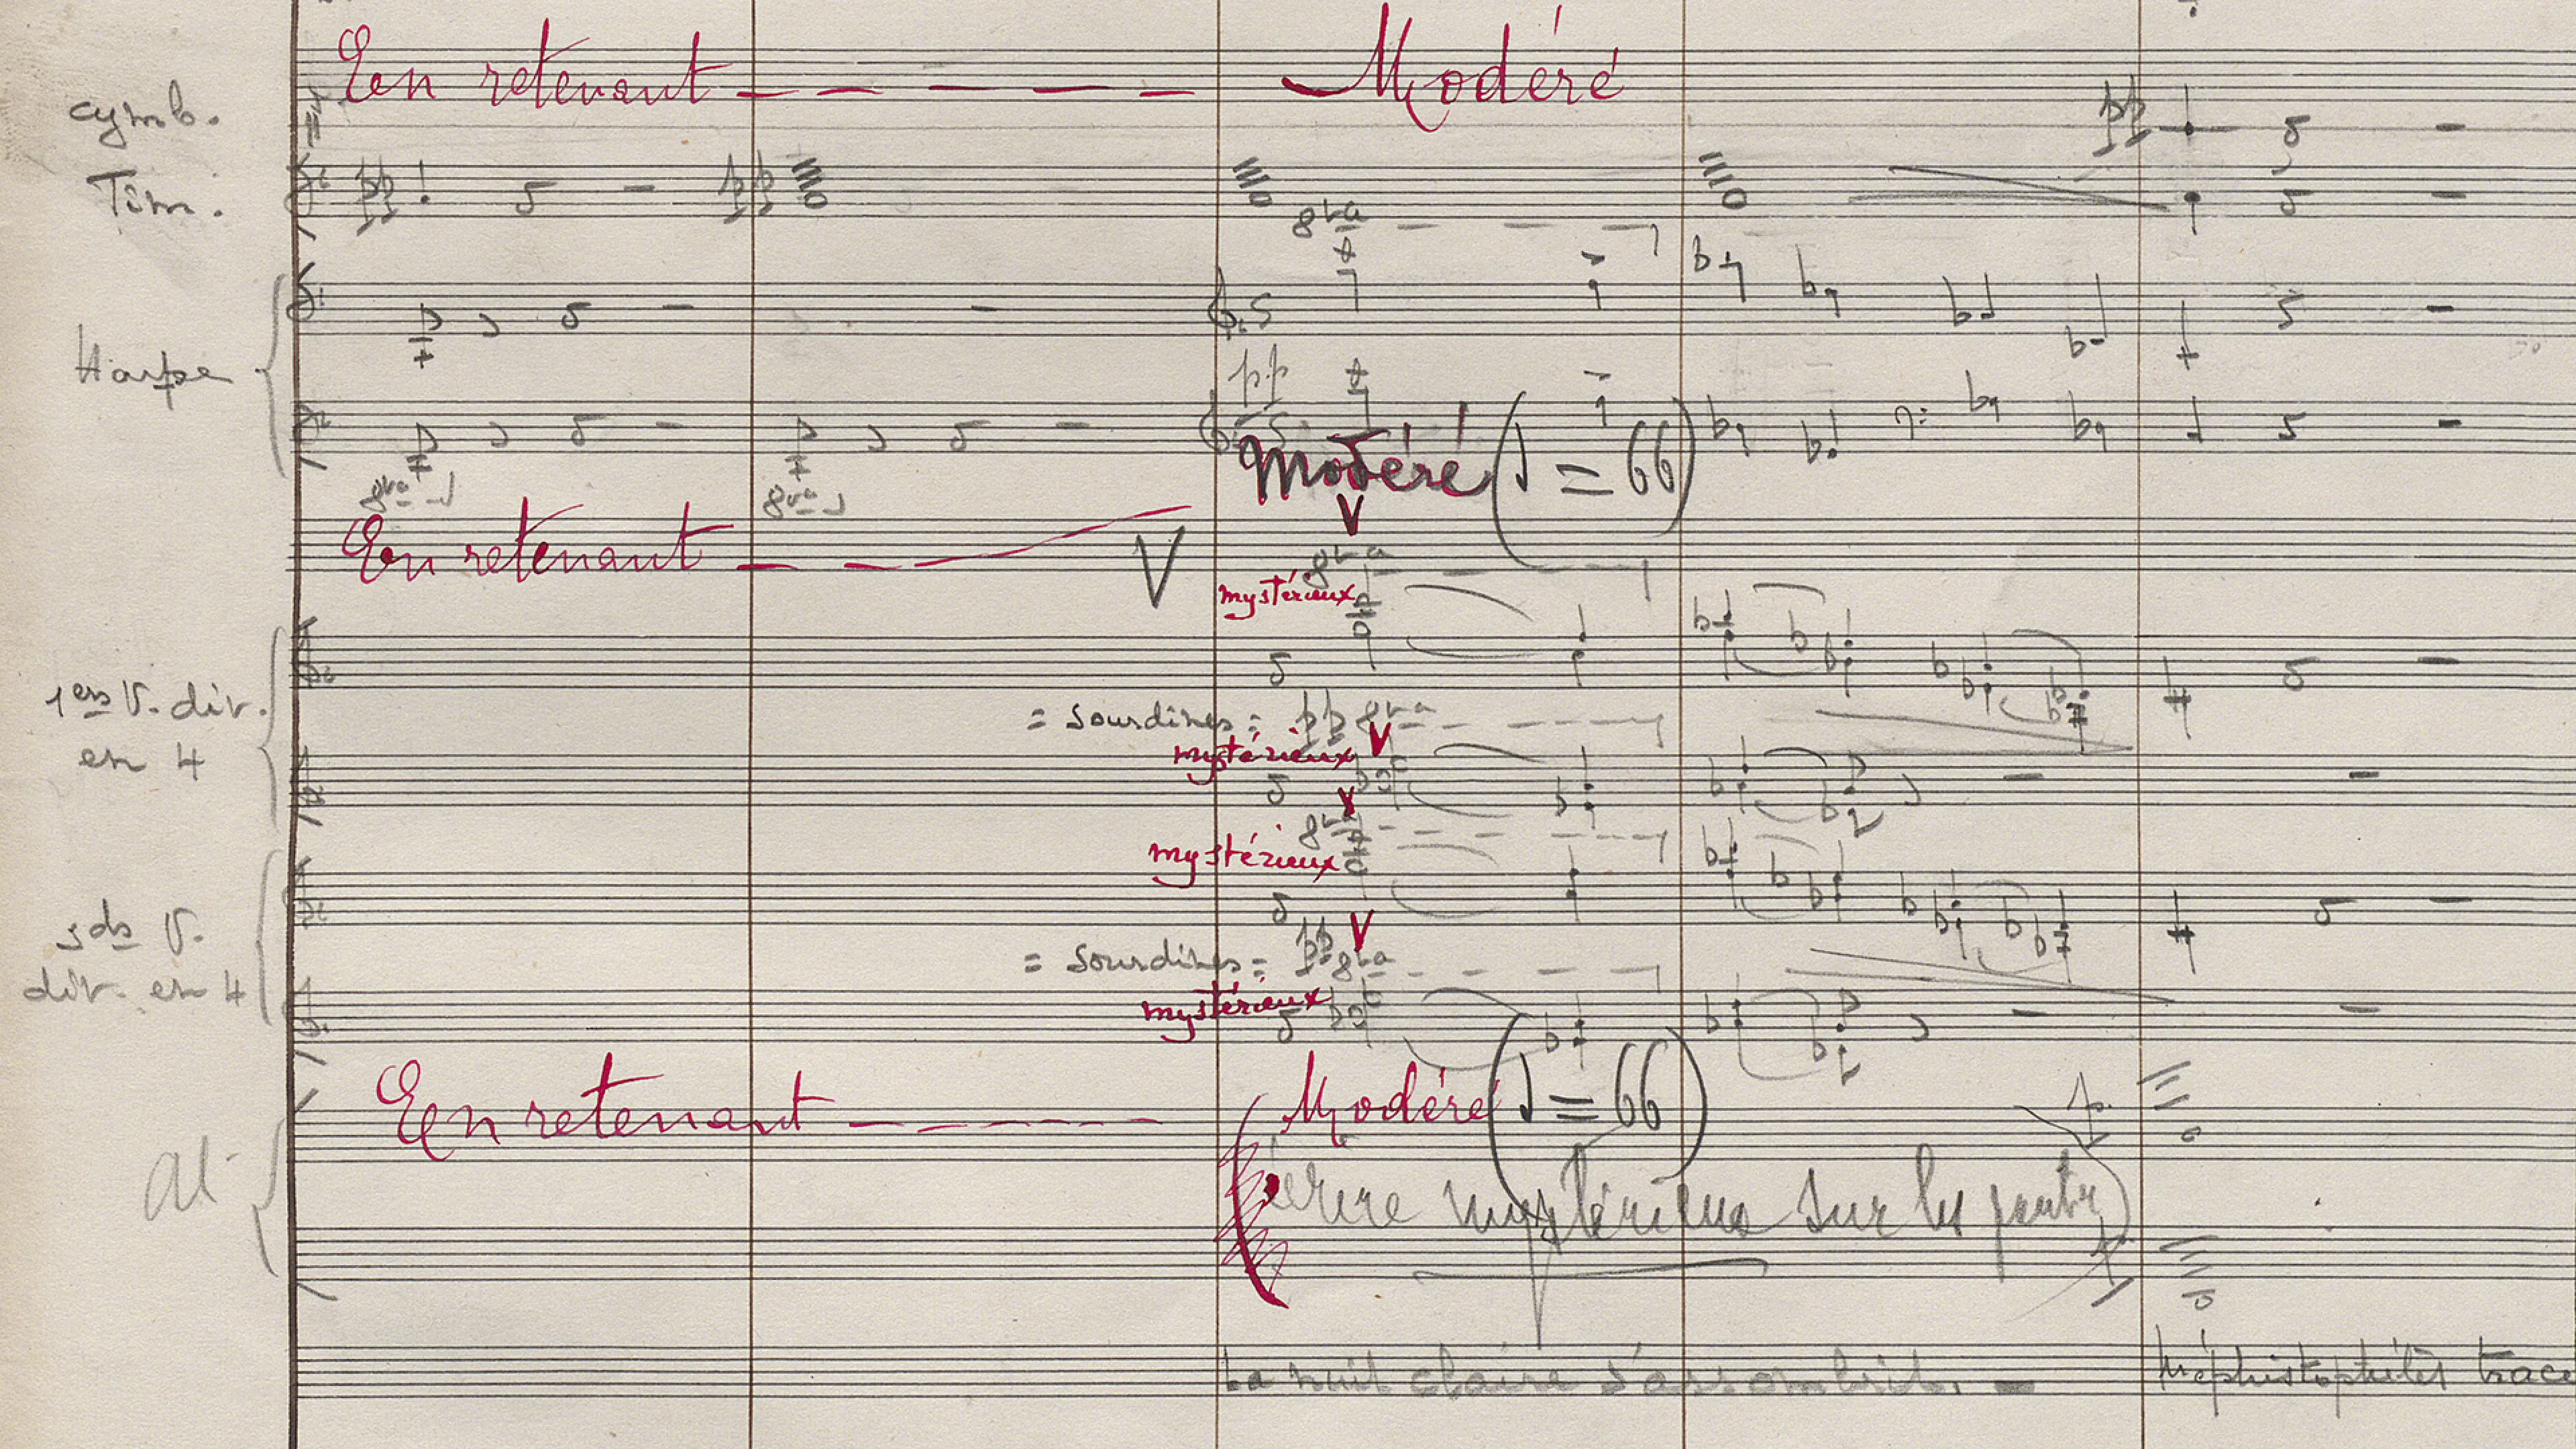 En retenant Modéré
cymb. pp
Tim. pp pp
8va
Harpe
pp
Modéré (♩ = 66)
8va 8va
En retenant V V
8va
mystérieux
1ers V. div. en 4
= Sourdines = pp 8va
V
mystérieux
8va
mystérieux
2ds V. div. en 4
V
= Sourdines = pp 8va
mystérieux
En retenant Modéré (♩ = 66)
Al
écrire mystérieux sur les parties
La nuit claire s'assombrit. —
Méphistophélès trace